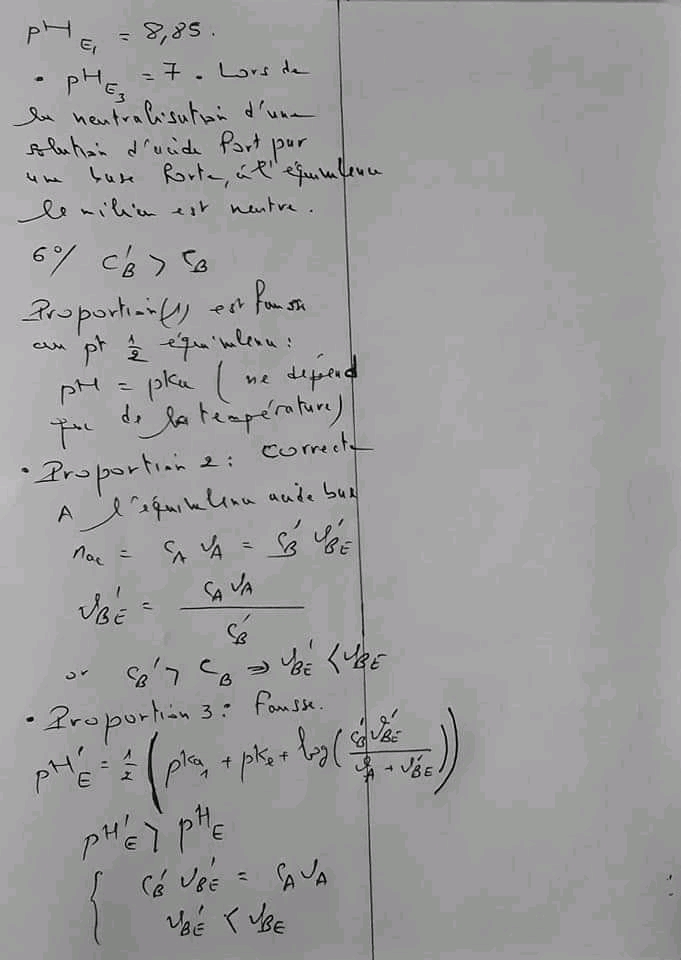 pH_E1 = 8,85.
• pH_E3 = 7. Lors de
la neutralisation d'une
solution d'acide fort par
une base forte, à l'équivalence
le milieu est neutre.
6°/ C'_B > C_B
Proportion (1) est fausse
au pt 1/2 équivalence :
pH = pKa ( ne dépend
que de la température)
• Proportion 2 : correcte
A l'équivalence acide base
n_ac = C_A V_A = C'_B V'_BE
V'_BE = C_A V_A / C'_B
or C_B' > C_B ⇒ V'_BE < V_BE
• Proportion 3 : fausse.
pH'_E = 1/2 ( pKa_1 + pKe + log( C'_B V'_BE / V_A + V'_BE ))
pH'_E > pH_E
{ C'_B V'_BE = C_A V_A
V'_BE < V_BE